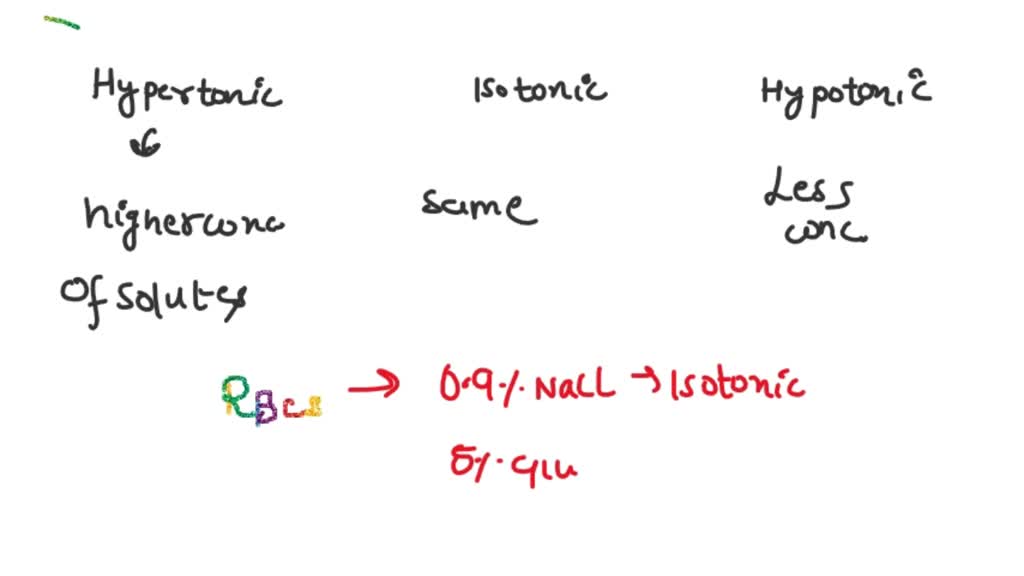 Hypertonic Isotonic Hypotonic
higher conc same Less
conc.
Of solutes
RBCs → 0.9% NaCl → Isotonic
5% Glu